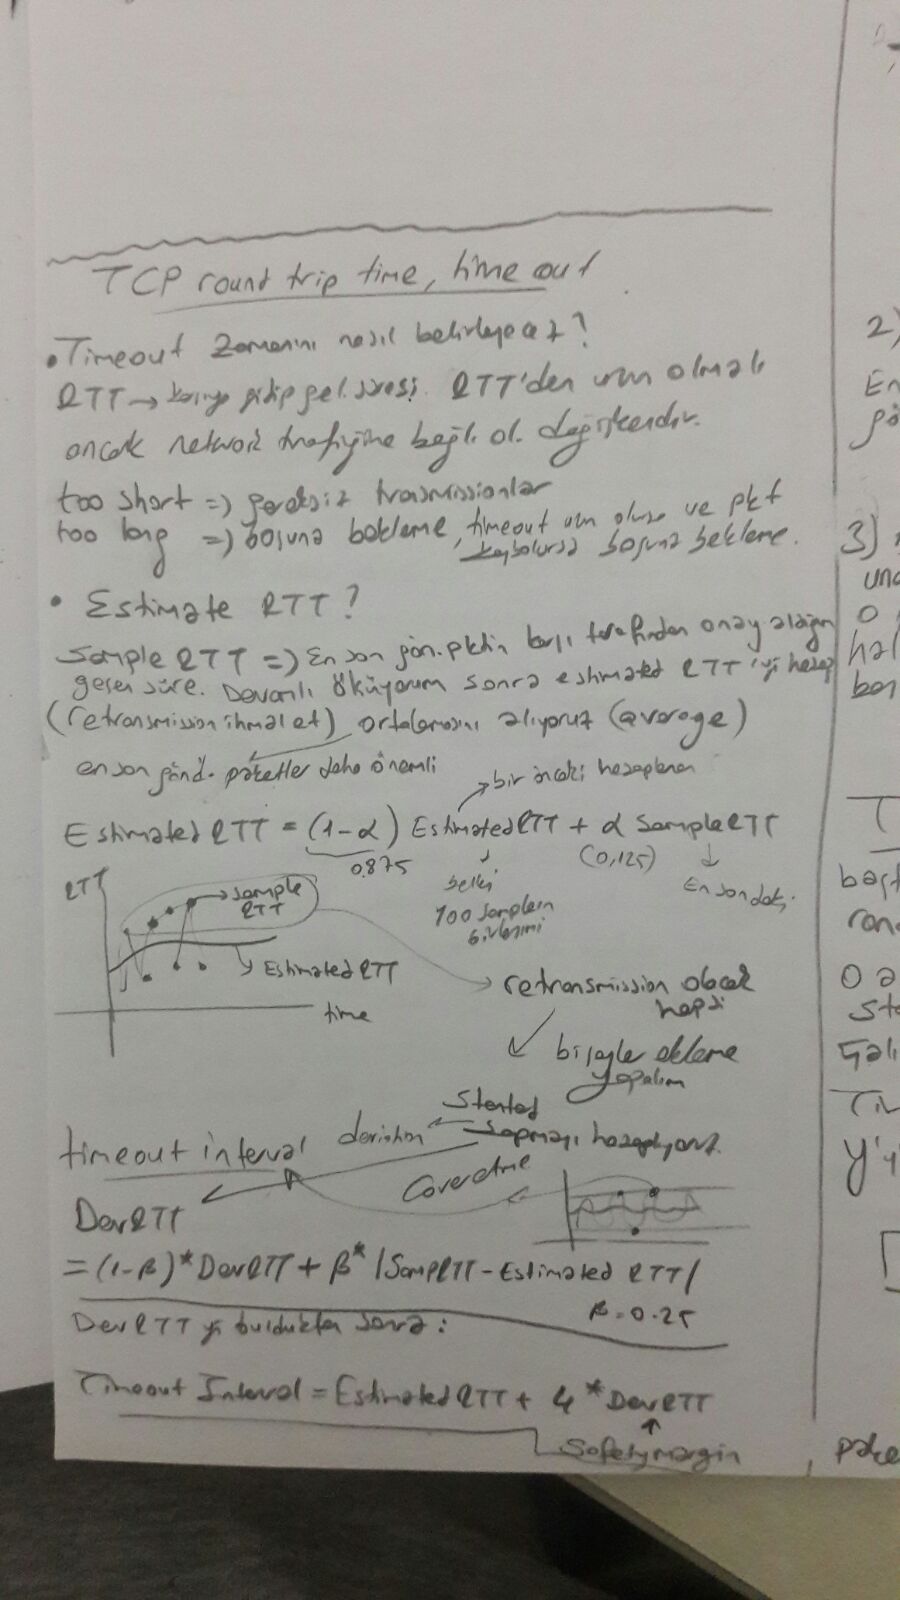 TCP round trip time, time out
• Timeout zamanını nasıl belirleyeceğiz?
RTT → karşıya gidip gel. süresi. RTT'den uzun olmalı
ancak network trafiğine bağlı ol. değişkendir.
too short => gereksiz transmissionlar
too long => boşuna bekleme, timeout uzun olursa ve pkt
kaybolursa boşuna bekleme.
• Estimate RTT?
Sample RTT => En son gön. pktin karşı tarafından onay aldığın
geçen süre. Devamlı ölçüyorum sonra estimated RTT'yi hesap
(retransmission ihmal et) ortalamasını alıyoruz (average)
en son gönd. paketler daha önemli
bir önceki hesaplanan
Estimated RTT = (1-α) Estimated RTT + α Sample RTT
0.875 (0,125)
belki En sondaki
100 samplein
birleşimi
RTT
sample
RTT
Estimated RTT
time
retransmission olacak
hepsi
bişeyle ekleme
yapalım
Standart
timeout interval deviation sapmayı hesaplıyoruz.
Cover etme
DevRTT
= (1-β)* DevRTT + β* |SampRTT - Estimated RTT|
β = 0.25
DevRTT yi bulduktan sonra:
Timeout Interval = Estimated RTT + 4 * DevRTT
Safety margin
2)
En
3)
0
T
ran
0
st
Ti
y'y
, pake